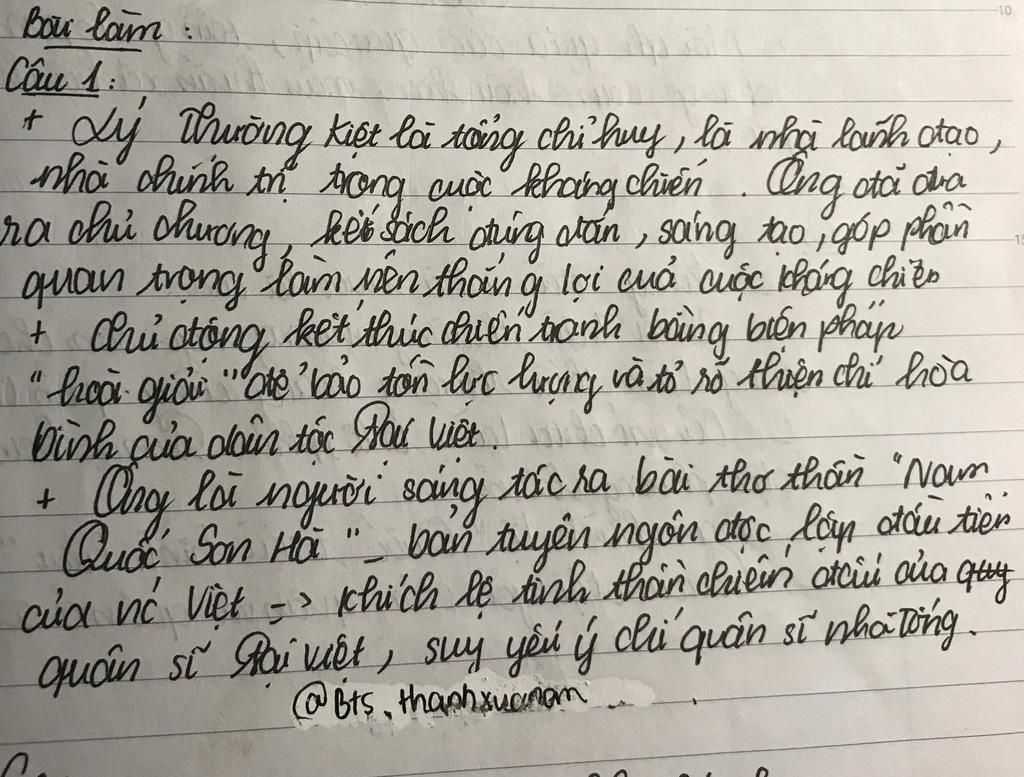 Bài làm :
Câu 1 :
+ Lý Thường Kiệt là tổng chỉ huy, là nhà lãnh đạo,
nhà chính trị trong cuộc kháng chiến. Ông đã đưa
ra chủ chương, kết sách đúng đắn, sáng tạo, góp phần
quan trọng làm nên thắng lợi cuả cuộc kháng chiến
+ Chủ động kết thúc chiến tranh bằng biện pháp
"hoà giải" để bảo tồn lực lượng và tỏ rõ thiện chí hòa
bình của dân tộc Đại Việt.
+ Ông là người sáng tác ra bài thơ thần "Nam
Quốc Sơn Hà" – bản tuyên ngôn độc lập đầu tiên
của nc Việt => khích lệ tinh thần chiến đấu của quy
quân sĩ Đại Việt, suy yếu ý chí quân sĩ nhà Tống.
@Bts.thanhxuanam
10